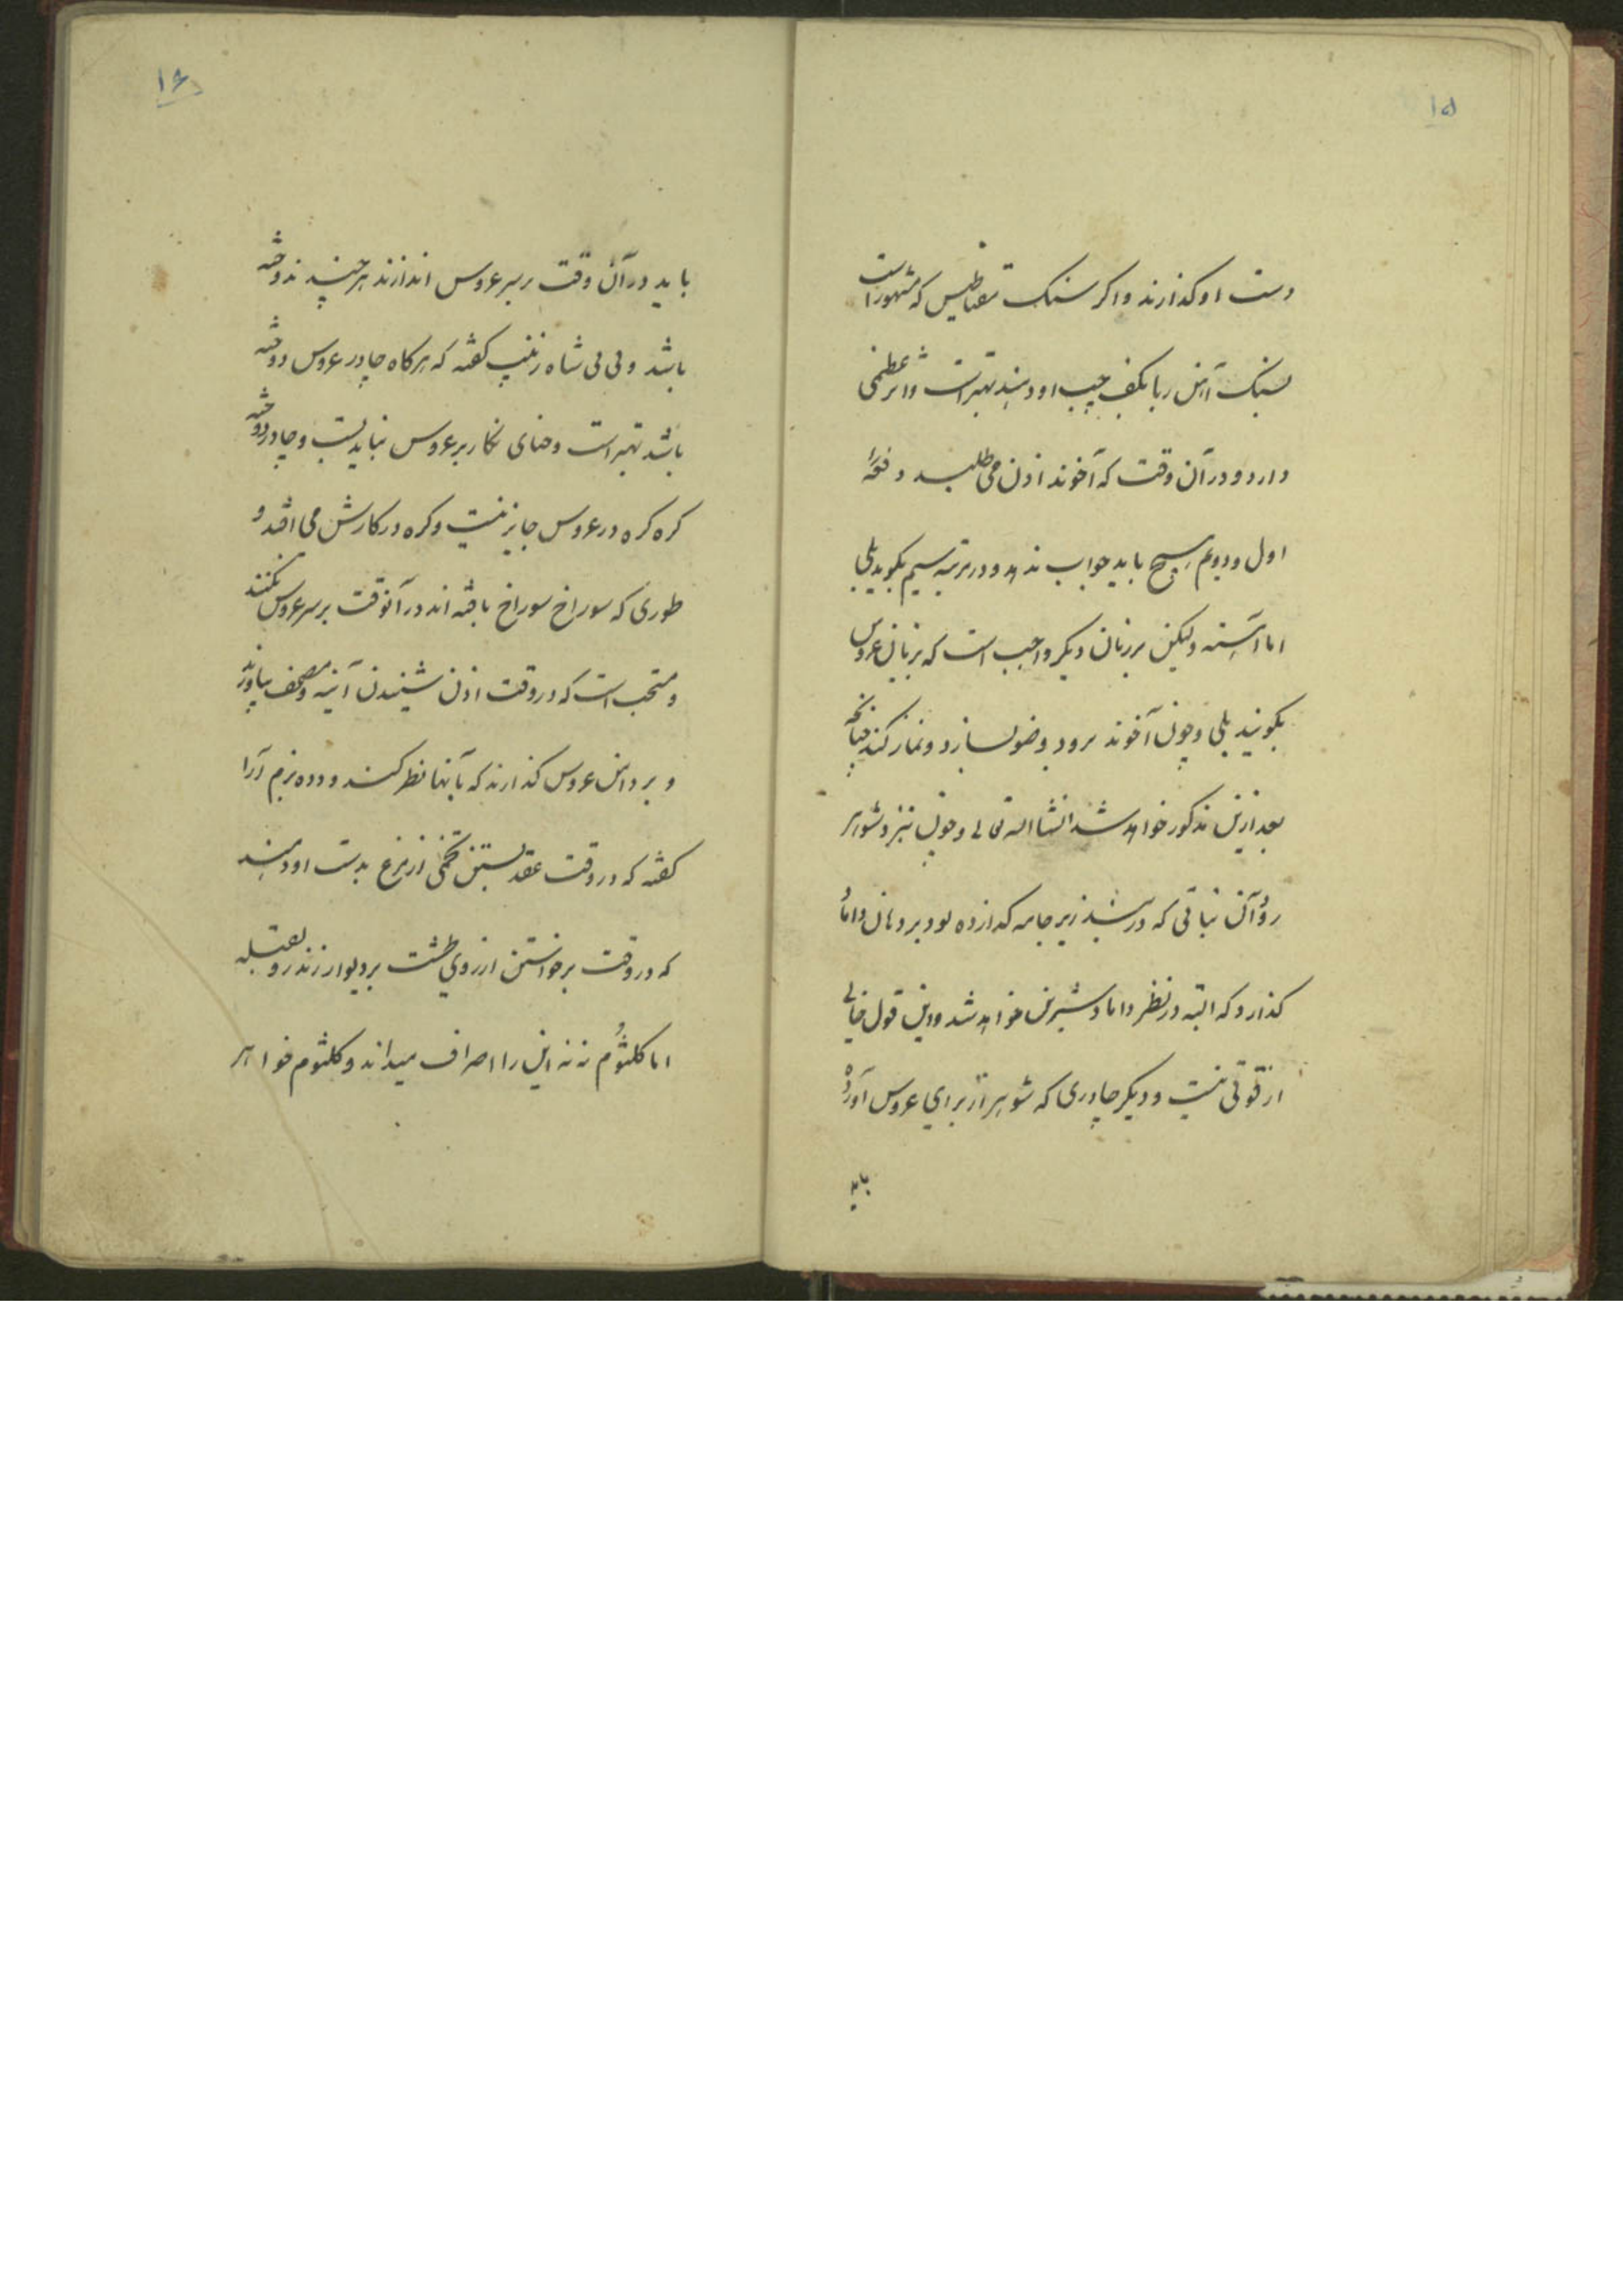 ۱۵
دست او کذارند و اکر سنک مقناطیس که مشهور است
بسنک آهن ربا بکف چپ او دهند بهتر است و اثر عظیمی
دارد و در آن وقت که آخوند اذن می طلبد دفعه
اول و دویم هیچ باید جواب ندهد و در مرتبه سیم بکوید بلی
اما آهسته ولیکن بر زنان دیکر واجب است که بزبان عروس
بکویند بلی و چون آخوند برود وضو بسازد و نماز کند چنانچه
بعد ازین مذکور خواهد شد انشا الله تعالی و چون نیز شوهر
رود آن نباتی که در زیر جامه کدازده بود بر دهان داماد
کذارد که البته در نظر داماد شیرین خواهد شد و این قول خالی
از قوتی نیست و دیکر چادری که شوهر از برای عروس آورده
باید
۱۶
باید در آن وقت بر سر عروس اندازند هر چند ندوخته
باشد و بی بی شاه زینب کفته که هرکاه چادر عروس دوخته
باشد بهتر است و حنای نکار بر عروس نباید بست و چادر دوخته
کره کره در عروس جایز نیست و کره در کارش می افتد و
طوری که سوراخ سوراخ بافته اند در آنوقت بر سر عروس نکنند
و مستحب است که در وقت اذن شنیدن آینه و مصحف بیاورند
و بر دامن عروس کذارند که بآنها نظر کند و دده بزم آرا
کفته که در وقت عقد بستن تخمی از مرغ بدست او دهند
که در وقت برخواستن از روی طشت بر دیوار زند رو بقبله
اما کلثوم ننه این را اصراف میداند و کلثوم خواهر